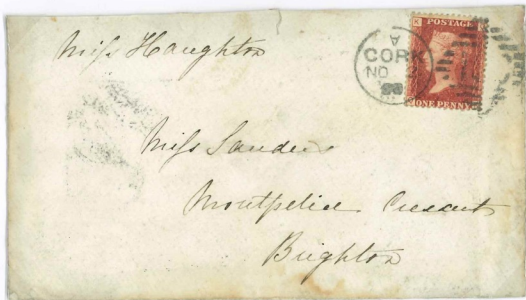 Miss Haughton
POSTAGE
A
CORK
NO
ONE PENNY
Miss Sanders
Montpelier Crescent
Brighton